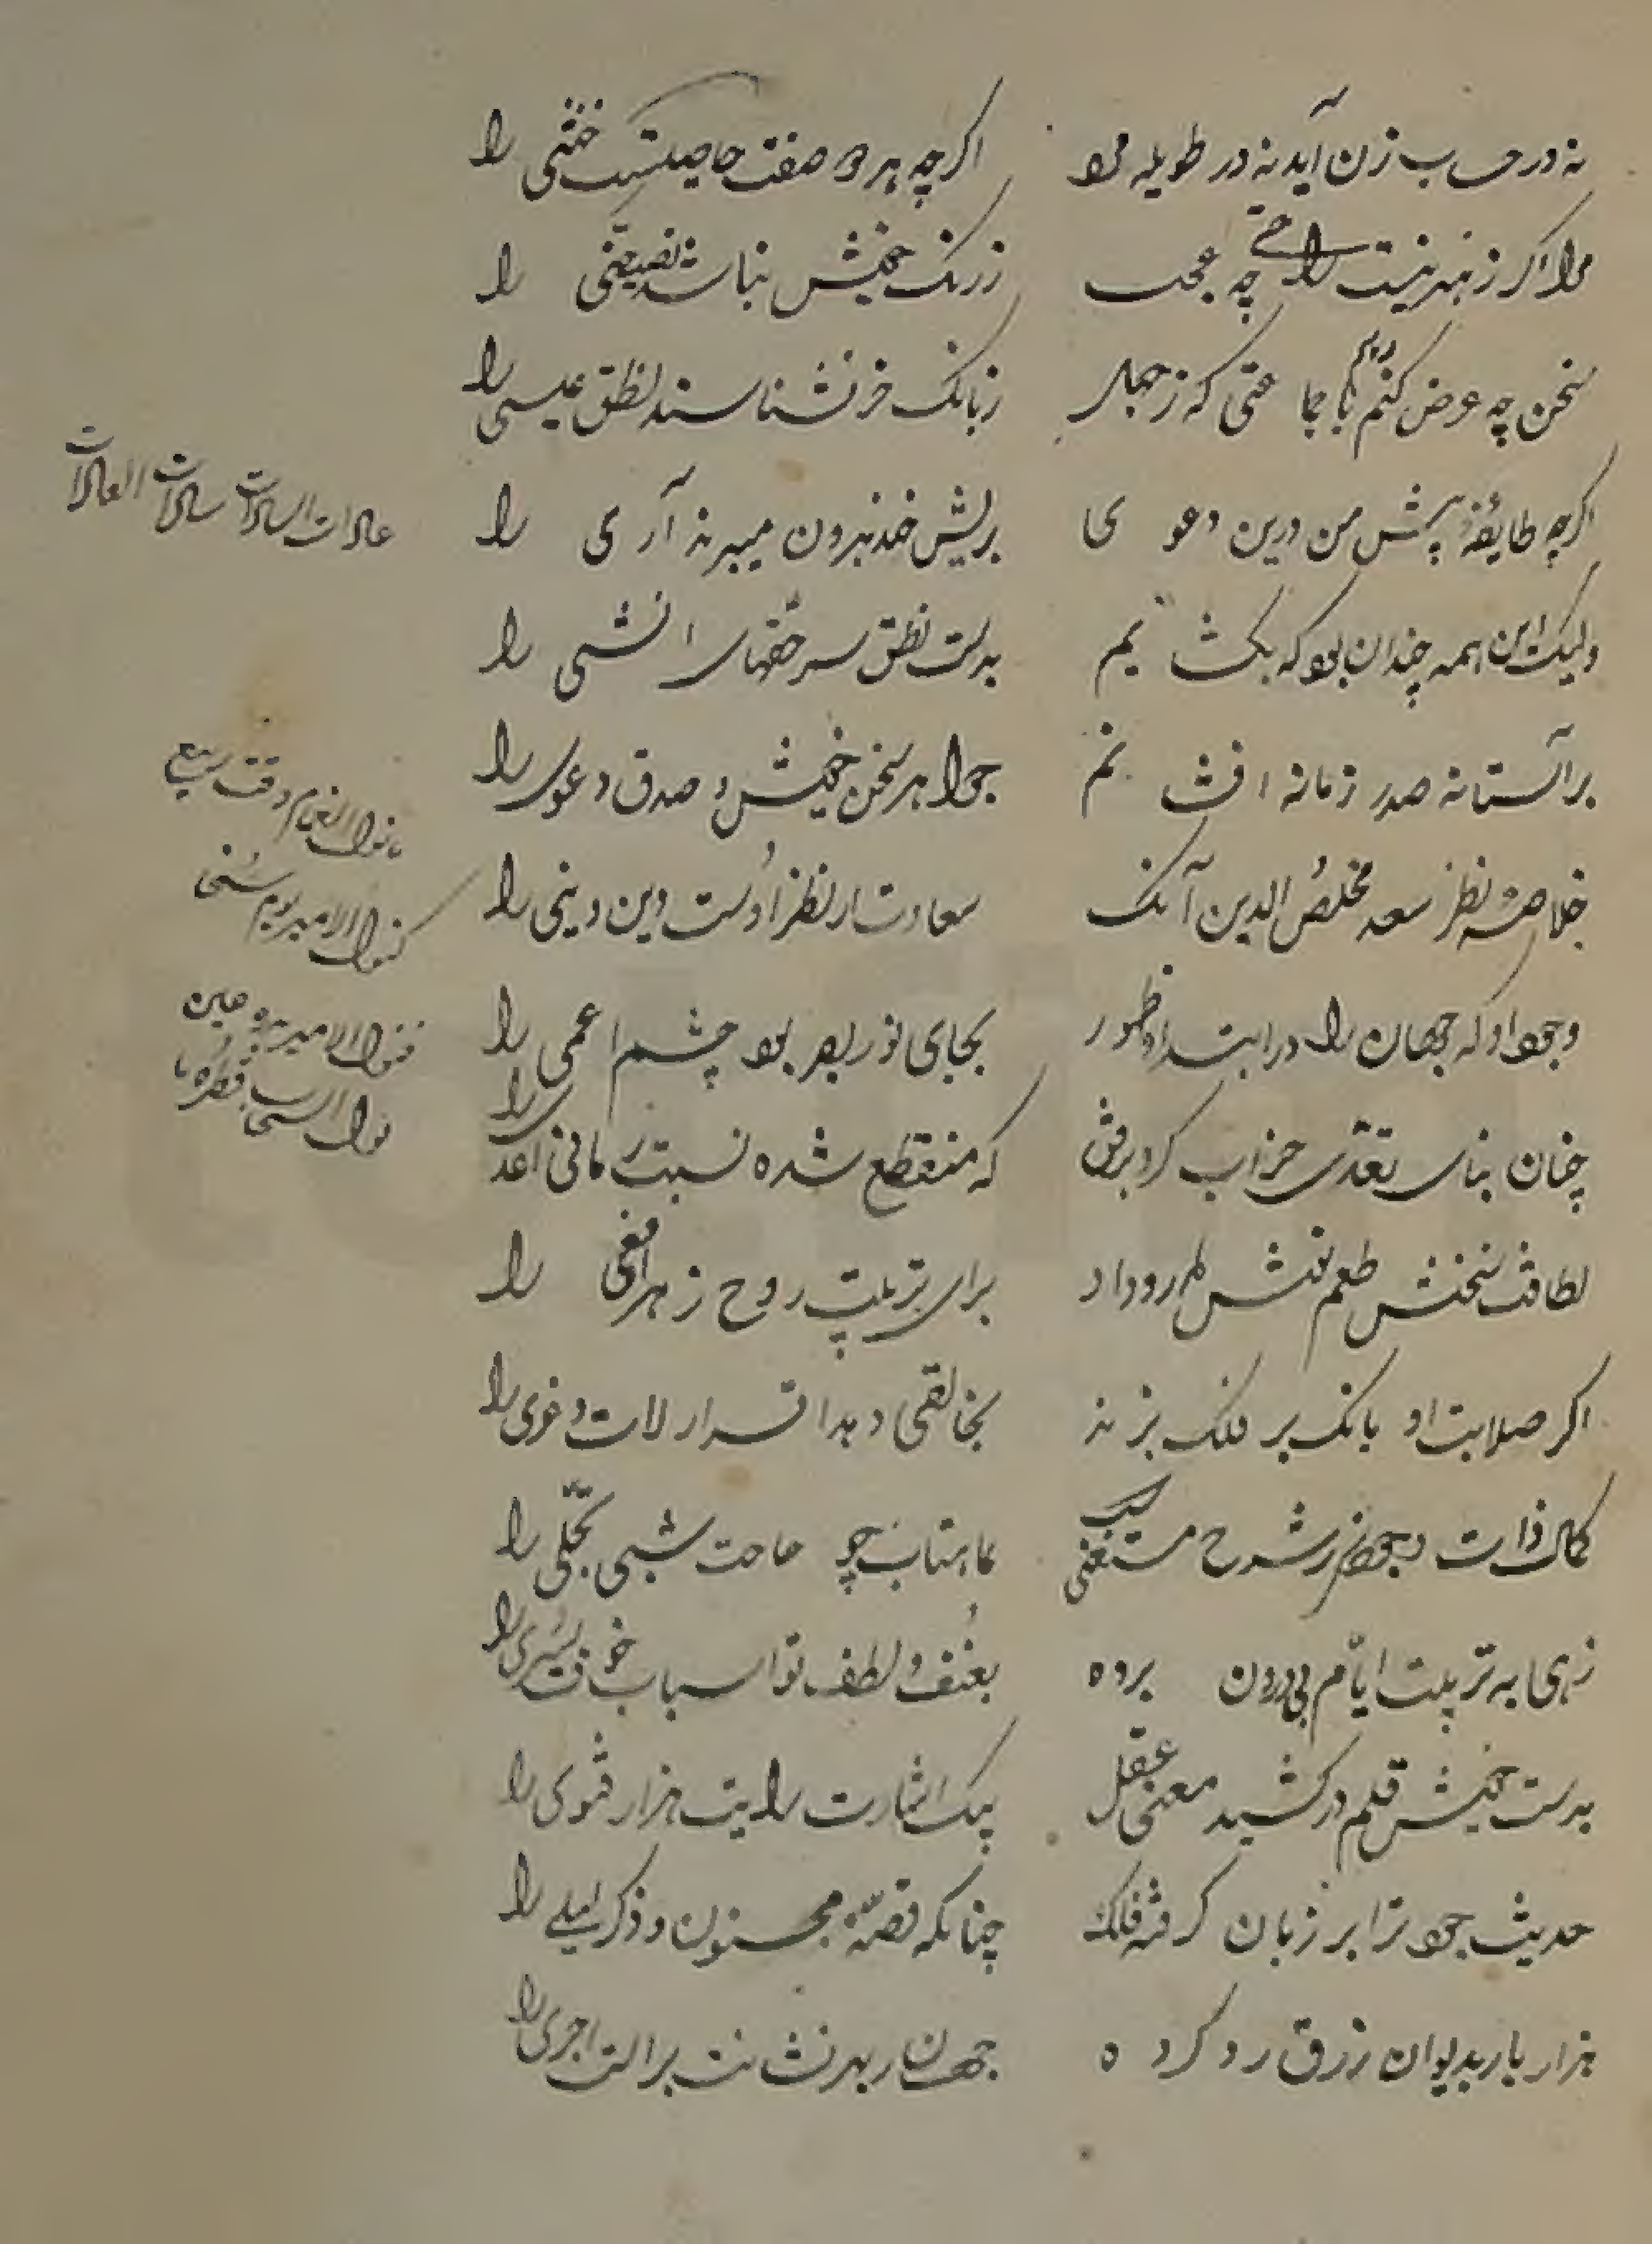 نه در حساب زن آید نه در طویله مرد اگر چه هر دو صفت حاصلست خنثی را
مرا اگر ز هنر نیست راحتی چه عجب ز رنگ خویش نباشد نصیب حنی را
سخن چه عرض کنم با جماعتی که ز جهل ز بانک خر نشناسند نطق عیسی را
اگر چه طایفهٔ پیش من درین دعوی بریش خند برون میبرند آری را
ولیک این همه چندان بود که بکشایم بدست نطق سر حقهای انشی را
بر آستانه صدر زمانه افشانم جواهر سخن خویش و صدق دعوی را
خلاصه نظر سعد مخلص الدین آنک سعادت از نظر اوست دین و دنیی را
وجود او که جهان را در ابتداء ظهور بجای نور بصر بود چشم اعمی را
چنان بنای تعدی خراب کرد برفق که منقطع شده نسبت زمانی اعدی را
لطافت سخنش طعم نفس دارو داد برای تربیت روح زهر افعی را
اگر صلابت او بانک بر فلک بزند بخالقی دهد اقرار لات و عزی را
کمال ذات و جودش ز شرح مستغنیست بماهتاب چو حاجت شب تجلی را
زهی به تربیت ایام پی برون برده بعنف و لطف تو اسباب خوف و بشری را
بدست خویش قلم در کشید معنی عقل بیک اشارت رایت هزار فتوی را
حدیث جود ترا بر زبان گرفته فلک چنانکه قصه مجنون و ذکر لیلی را
هزار بار بدیوان رزق رد کرده جهان ز بهر نشانت برات اجری را
عادات السادات سادات العادات
ما نوال الغمام وقت ربیع
کنوال الامیر یوم سخی
فنوال الامیر بدره عین
نوال السحاب قطره ماء